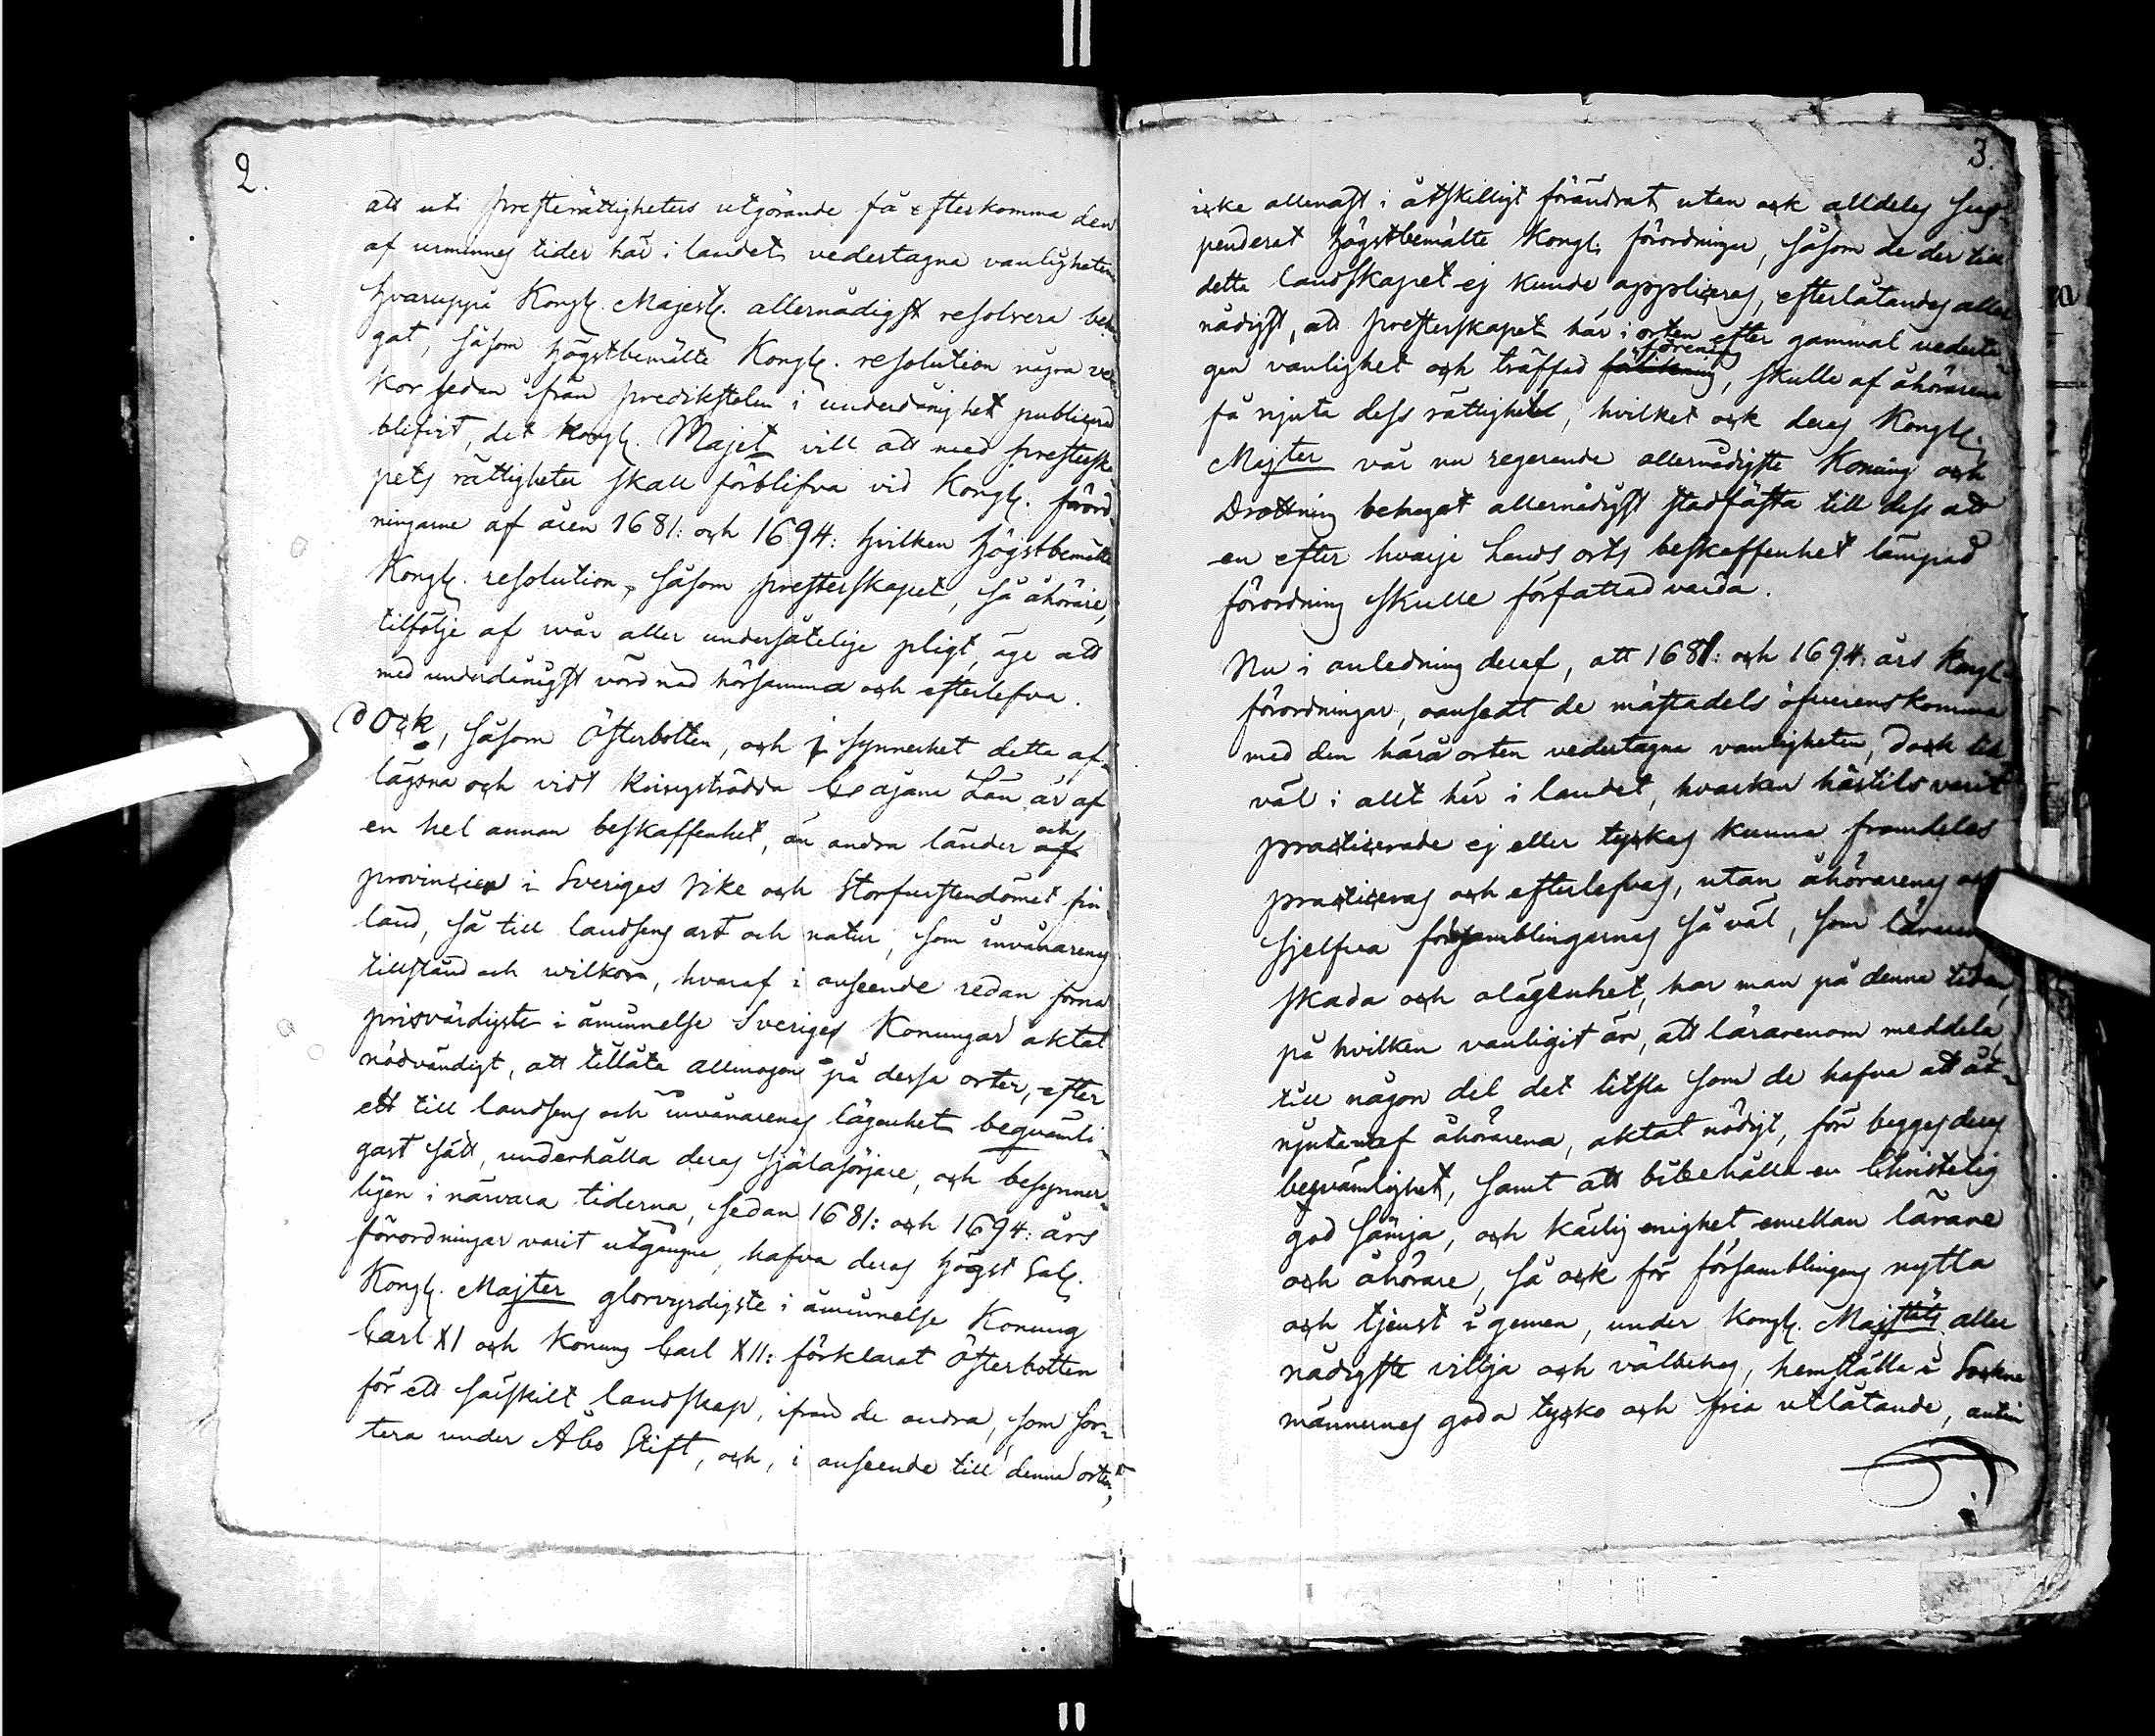 2.
att uti prestərättighetens utgörande få efterkomma den
af urminnes tider här i landet vedertagna vanligheten
hvaruppå Kongl. Majest. allernådigst resolvera beha
gat, såsom högstbemälte Kongl. resolution några vec
kor sedan ifrån predikstolen i underdånighet publicerad
blifvit, det Kongl. Majet vill att med presterska
pets rättigheter skall förblifva vid Kongl. förord
ningarne af åren 1681: och 1694: hvilken högstbemälte
Kongl. resolution, såsom presterskapet, så åhörare,
tilfölje af wår aller undersåtelige pligt, äge att
med underdånigst vördnad hörsamma och efterlefva.
Dock, såsom Österbotten, och i synnerhet detta af-
lägsna och vidt kringströdda Cajana Län är af
en hel annan beskaffenhet, än andra länder och af
provincier i Sveriges rike och Storfurstendömet Fin
land, så till landsens art och natur, som invånarens
tillstånd och wilkor, hvaraf i anseende redan forna
prisvärdigste i åminnelse Sveriges Konungar aktat
nödvändigt, att tillåta allmogen på dessa orter, efter
ett till landsens och invånarens lägenhet beqvämli-
gast sätt, underhålla deras själasörjare, och besynner-
ligen i närvara tiderna, sedan 1681: och 1694: års
förordningar varit utgångne, hafva deras högst Sal.
Kongl. Majter glorvyrdigste i åminnelse Konung
Carl XI och Konung Carl XII: förklarat Österbotten
för ett särskilt landskap, ifrån de andra, som sor-
tera under Åbo Stift, och, i anseende till denna orten,
3.
icke allenast i åtskilligt förändrat, utan ock alldeles sus-
penderat högstbemälte Kongl. förordningar, såsom de der till
detta landskapet ej kunde appliceras, efterlåtandes aller
nådigst, att presterskapet här i orten efter gammal vederta-
gen vanlighet och träffad förening, skulle af åhörarena
få njuta dess rättigheter, hvilket ock deras Kongl.
Majter vår nu regerande allernådigste Konung och
Drottning behagat allernådigst stadfästa till dess att
en efter hvarje Lands orts beskaffenhet lämpad
förordning skulle författad varda.
Nu i anledning deraf, att 1681: och 1694: års Kongl.
förordningar, oansedt de mästadels öfverenskomma
med den härå orten vedertagna vanligheten, dock lik
väl i allt här i landet, hvarken härtils varit
practicerade ej eller tyckas kunna framdeles
practiceras och efterlefvas, utan åhörarenas och
sjelfva församblingarnas så väl, som lärarens
skada och olägenhet, har man på denna tiden,
på hvilken vanligit är, att lärarenom meddela
till någon del det litsla som de hafva att åt-
njuta af åhörarena, aktat nödigt, för begges deras
beqvämlighet, samt att bibehålla en Christelig
god sämja, och kärlig enighet emellan lärare
och åhörare, så ock för församblingens nytta
och tjenst i gemen, under Kongl. Majstäts aller
nådigste vilja och välbehag, hemställa i Sockne
männernas goda tycko och fria utlåtande, antin